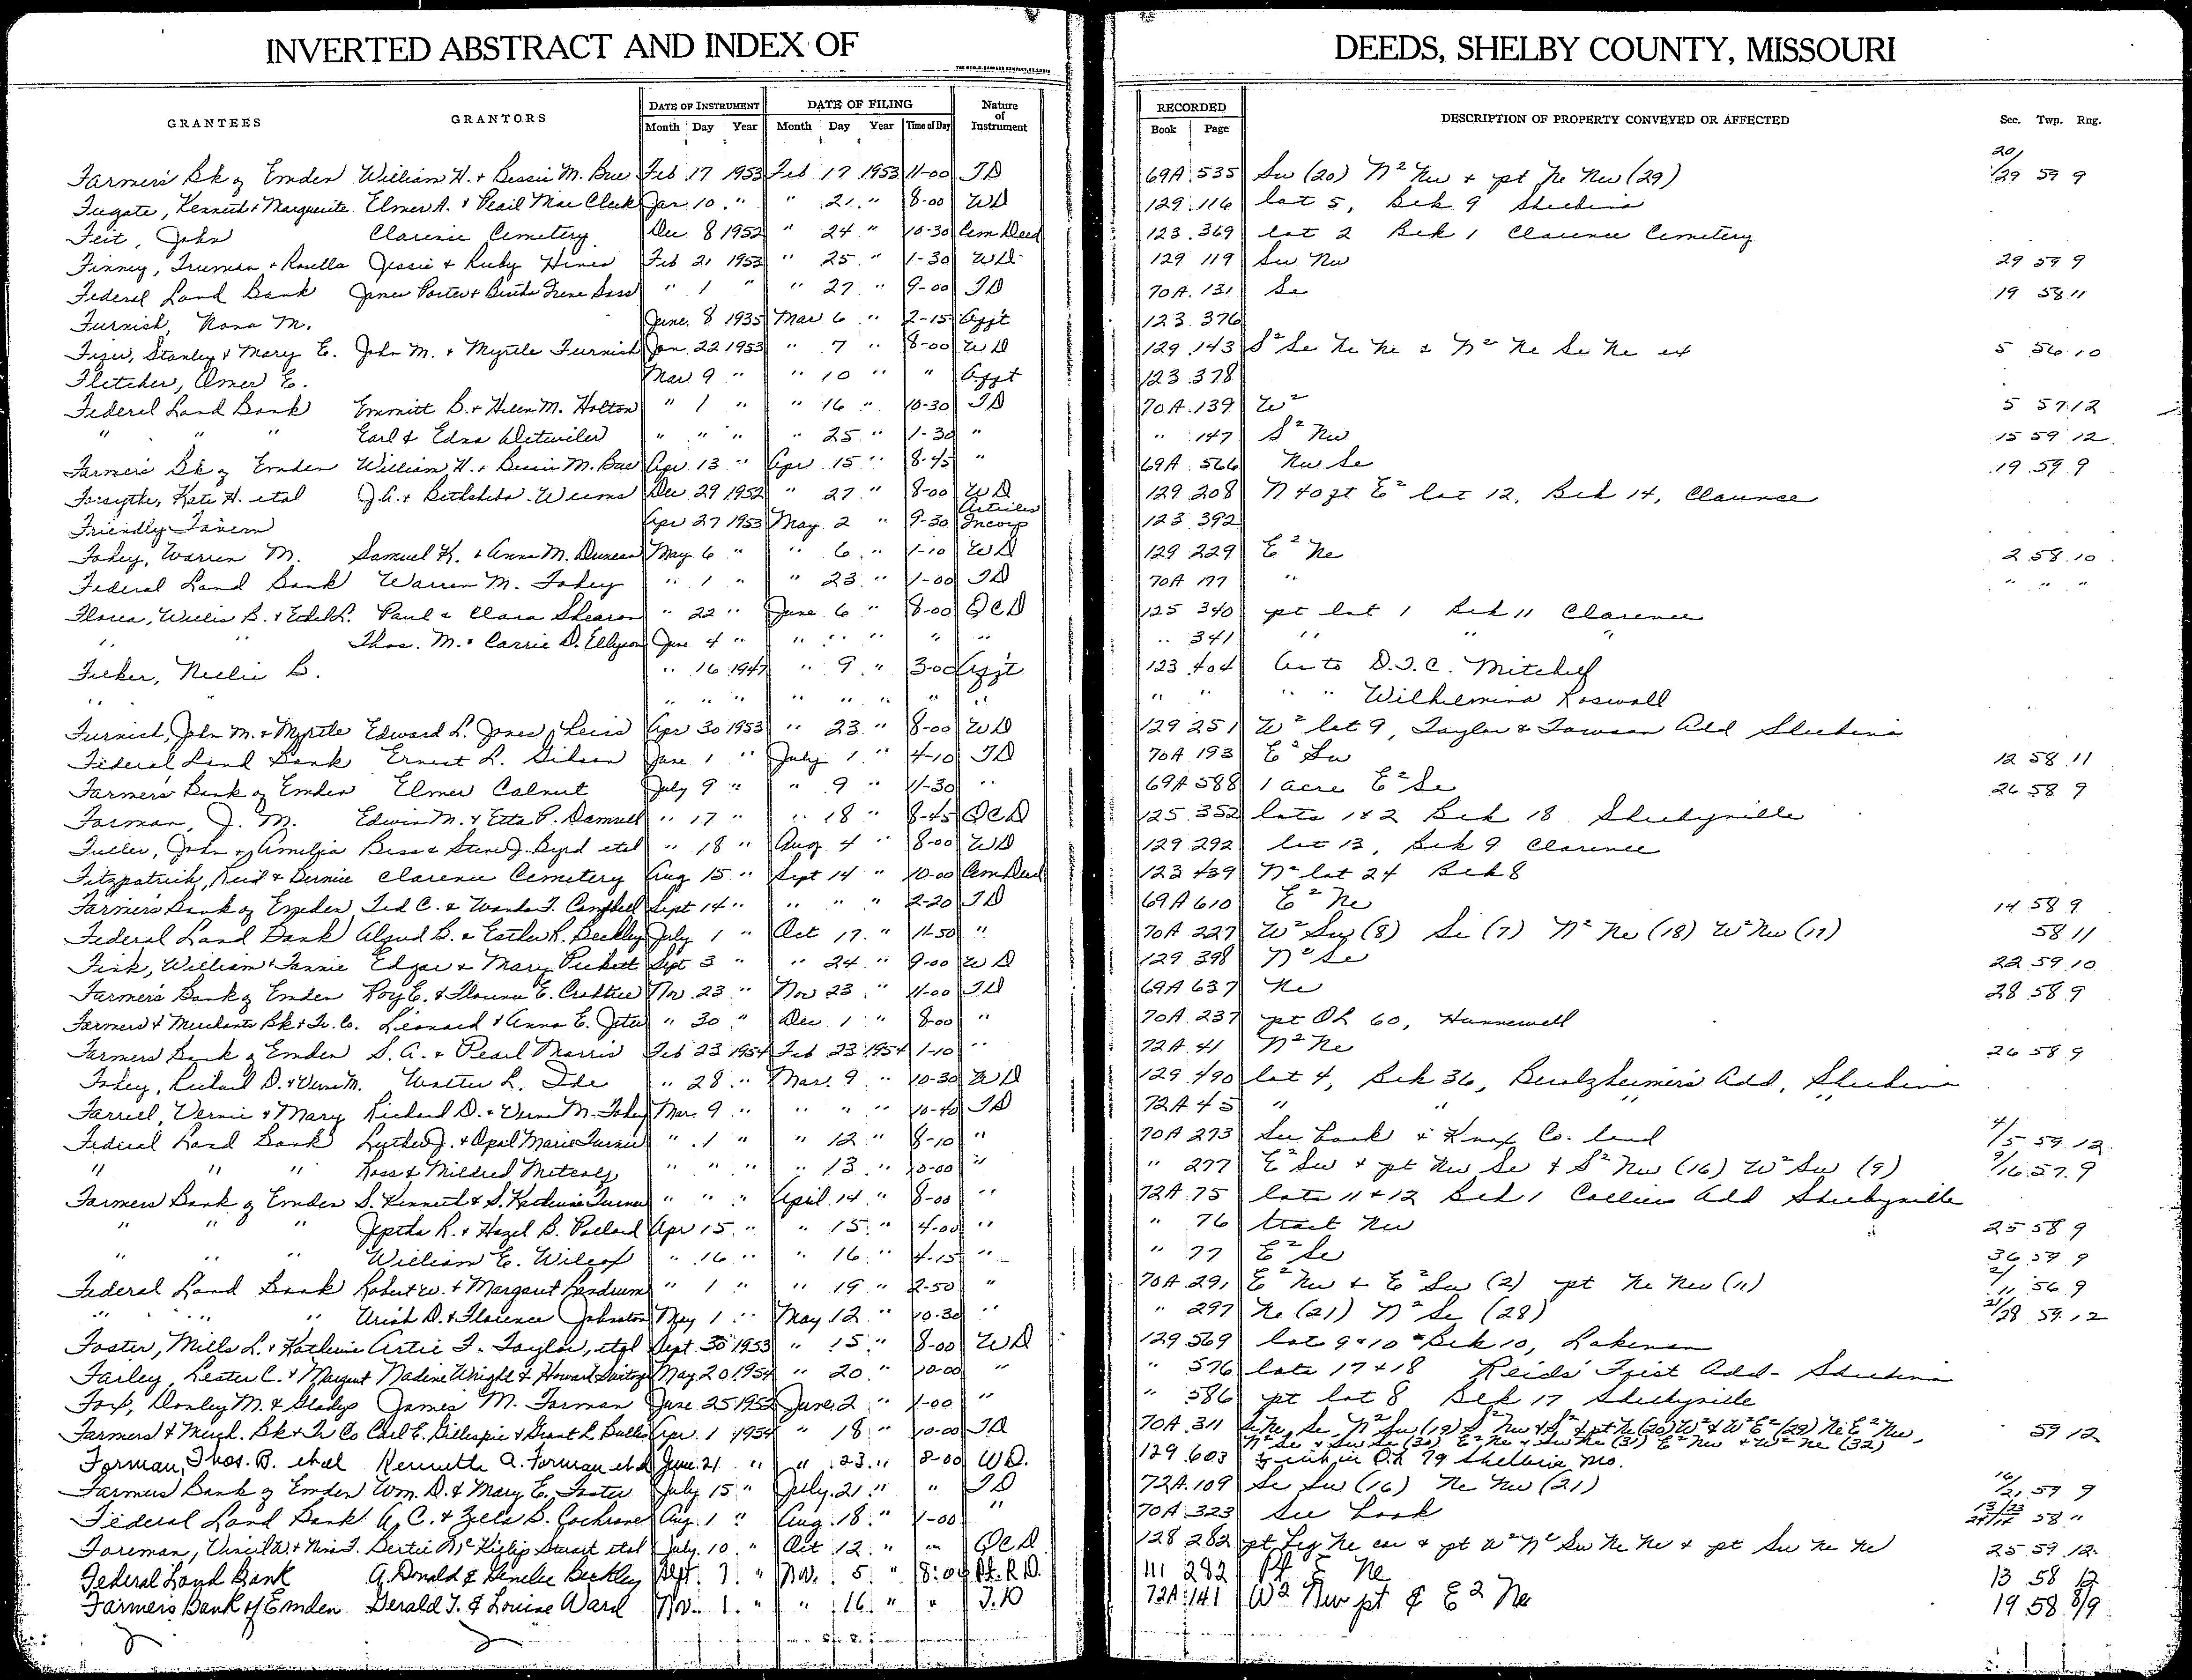 INVERTED ABSTRACT AND INDEX OF DEEDS, SHELBY COUNTY, MISSOURI
GRANTEES GRANTORS DATE OF INSTRUMENT DATE OF FILING Nature of Instrument RECORDED DESCRIPTION OF PROPERTY CONVEYED OR AFFECTED Sec. Twp. Rng.
Month Day Year Month Day Year Time of Day Book Page
Farmer's Bk of Emden William H. + Bessie M. Bue Feb 17 1953 Feb 17 1953 11-00 TD 69A 535 Sw (20) N2 Nw + pt Ne Nw (29) 20/29 59 9
Fugate, Kenneth + Marguerite Elmer A. + Pearl Mae Cleek Jan 10 " " 21 " 8-00 WD 129 116 lot 5, Blk 9 Shelbina
Feit, John Clarence Cemetery Dec 8 1952 " 24 " 10-30 Cem Deed 123 369 lot 2 Blk 1 Clarence Cemetery
Finney, Truman + Rosella Jessie + Ruby Hines Feb 21 1953 " 25 " 1-30 WD 129 119 Sw Nw 29 59 9
Federal Land Bank James Porter + Bertha Irene Sass " 1 " " 27 " 9-00 TD 70A 131 Se 19 58 11
Furnish, Nona M. June 8 1935 Mar 6 " 2-15 Afft 123 376
Fizer, Stanley + Mary E. John M. + Myrtle Furnish Jan 22 1953 " 7 " 8-00 WD 129 143 S2 Se Ne Ne + N2 Ne Se Ne ex 5 56 10
Fletcher, Omer E. Mar 9 " " 10 " " Afft 123 378
Federal Land Bank Emmitt B. + Helen M. Holton " 1 " " 16 " 10-30 TD 70A 139 W2 5 57 12
" " " Earl + Edna Detwiler " " " " 25 " 1-30 " " 147 S2 Nw 15 59 12
Farmer's Bk of Emden William H. + Bessie M. Bue Apr 13 " Apr 15 " 8-45 " 69A 566 Nw Se 19 59 9
Forsythe, Kate H. etal J.A. + Bethsheba Weems Dec 29 1952 " 27 " 8-00 WD 129 208 N 40 ft E2 lot 12, Blk 14, Clarence
Friendly Tavern Apr 27 1953 May 2 " 9-30 Articles Incorp 123 392
Fohey, Warren M. Samuel K. + Anna M. Duncan May 6 " " 6 " 1-10 WD 129 229 E2 Ne 2 58 10
Federal Land Bank Warren M. Fohey " 1 " " 23 " 1-00 TD 70A 177 " " " "
Florea, Willis B. + Ethel L. Paul + Clara Shearon " 22 " June 6 " 8-00 QCD 125 340 pt lot 1 Blk 11 Clarence
" " Thos. M. + Carrie D. Ellyson June 4 " " " " " " " 341 " " "
Ficker, Nellie B. " 16 1947 " 9 " 3-00 Afft 123 404 As to D.T.C. Mitchell
" " " " " " " " " " " " " Wilhelmina Roswall
Furnish, John M. + Myrtle Edward L. Jones, Heirs Apr 30 1953 " 23 " 8-00 WD 129 251 W2 lot 9, Taylor + Towson Add Shelbina
Federal Land Bank Ernest L. Gibson June 1 " July 1 " 4-10 TD 70A 193 E2 Sw 12 58 11
Farmer's Bank of Emden Elmer Calnut July 9 " " 9 " 11-30 " 69A 588 1 acre E2 Se 26 58 9
Forman, J. M. Edwin M. + Etta P. Damrell " 17 " " 18 " 8-45 QCD 125 352 lots 1+2 Blk 18 Shelbyville
Fuller, John + Amelia Bess + Steve J. Byrd etal " 18 " Aug 4 " 8-00 WD 129 292 lot 13, Blk 9 Clarence
Fitzpatrick, Reid + Bernice Clarence Cemetery Aug 15 " Sept 14 " 10-00 Cem Deed 123 439 N2 lot 24 Blk 8
Farmer's Bank of Emden Ted C. + Wanda F. Campbell Sept 14 " " " " 2-20 TD 69A 610 E2 Ne 14 58 9
Federal Land Bank Algud B. + Esther R. Beckley July 1 " Oct 17 " 11-50 " 70A 227 W2 Sw (8) Se (7) N2 Ne (18) W2 Nw (17) 58 11
Fink, William + Fannie Edgar + Mary Puckett Sept 3 " " 24 " 9-00 WD 129 398 N2 Se 22 59 10
Farmer's Bank of Emden Roy E. + Florence E. Crabtree Nov. 23 " Nov 23 " 11-00 TD 69A 637 Ne 28 58 9
Farmers + Merchants Bk + Tr. Co. Leonard + Anna E. Jeter " 30 " Dec 1 " 8-00 " 70A 237 pt OL 60, Hunnewell
Farmers Bank of Emden S. A. + Pearl Morris Feb 23 1954 Feb 23 1954 1-10 " 72A 41 N2 Ne 26 58 9
Fohey, Richard D. + Verna M. Walter L. Ide " 28 " Mar. 9 " 10-30 WD 129 490 lot 4, Blk 36, Benlzheimer's Add, Shelbina
Farrell, Vernie + Mary Richard D. + Verna M. Fohey Mar. 9 " " " " 10-40 TD 72A 45 " " " "
Federal Land Bank Luther J. + Opal Marie Turner " 1 " " 12 " 8-10 " 70A 273 See book + Knox Co. land 4/5 59 12
" " " Ross + Mildred Metcalf " " " " 13 " 10-00 " " 277 E2 Sw + pt Nw Se + S2 Nw (16) W2 Sw (9) 9/16 57 9
Farmers Bank of Emden S. Kenneth + S. Katherine Turner " " " April 14 " 8-00 " 72A 75 lots 11+12 Blk 1 Collier Add Shelbyville
" " " Jeptha R. + Hazel B. Pollard Apr 15 " " 15 " 4-00 " " 76 tract Nw 25 58 9
" " " William E. Wilcox " 16 " " 16 " 4-15 " " 77 E2 Se 36 59 9
Federal Land Bank Robert W. + Margaret Landrum " 1 " " 19 " 2-50 " 70A 291 E2 Nw + E2 Sw (2) pt Ne Nw (11) 2/11 56 9
" " " Uriah D. + Florence Johnston May 1 " May 12 " 10-30 " " 297 Ne (21) N2 Se (28) 21/28 59 12
Foster, Mills L. + Katherine Artie F. Taylor, etal Sept. 30 1953 " 15 " 8-00 WD 129 569 lots 9+10 Blk 10, Lakenan
Farley, Lester C. + Margaret Nadine Wright + Howard May 20 1954 " 20 " 10-00 " " 576 lots 17+18 Reid's First Add- Shelbina
Fox, Donley M. + Gladys James M. Forman June 25 1952 June 2 " 1-00 " " 586 pt lot 8 Blk 17 Shelbyville
Farmers + Merch. Bk + Tr Co Carl E. Gillespie + Grant L. Apr. 1 1954 " 18 " 10-00 TD 70A 311 59 12
N2 Se + Sw Se (30) E2 Ne + Sw Ne (31) E2 Nw + W2 Ne (32)
Forman, Thos. B. et al Kennette A. Forman et al June 21 " " 23 " 8-00 WD. 129 603 int in O.L 79 Shelbina Mo.
Farmers Bank of Emden Wm. D. + Mary E. Foster July 15 " July 21 " " TD 72A 109 Se Sw (16) Ne Nw (21) 16/21 59 9
Federal Land Bank A. C. + Zella B. Cochrane Aug. 1 " Aug. 18 " 1-00 " 70A 323 See book 58 "
Foreman, Virgil W. + Nina F. Bertie McKillip Stuart etal July 10 " Oct 12 " " QCD 128 282 pt Leg Ne cor + pt W2 N2 Sw Ne Ne + pt Sw Ne Ne 25 59 12
Federal Land Bank A. Donald & Genelee Beckley Sept. 7 " Nov. 5 " 8:00 Pt. R.D. 111 282 Pt E Ne 13 58 12
Farmers Bank of Emden Gerald T. & Louise Ward Nov. 1 " " 16 " " T.D 72A 141 W2 Nw pt & E2 Ne 19 58 8/9